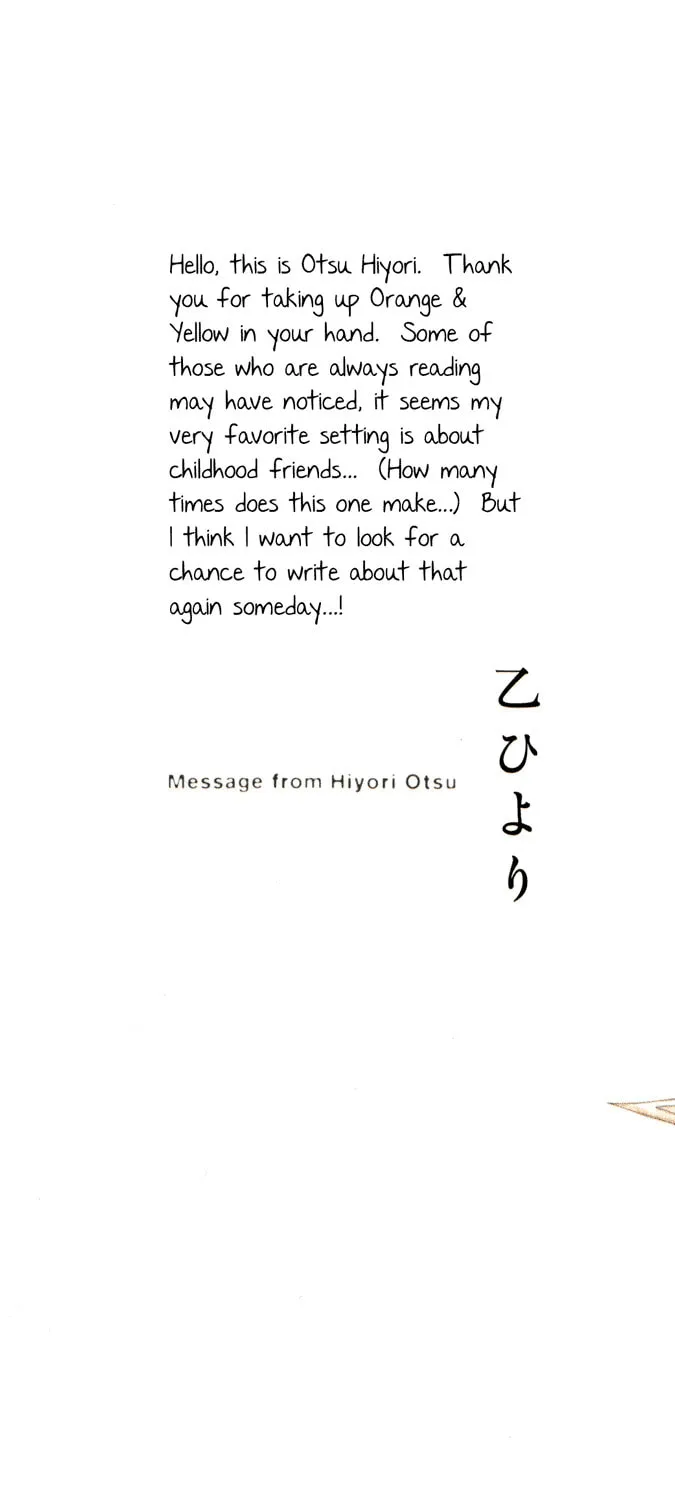 Hello, this is Otsu Hiyori. Thank
you for taking up Orange &
Yellow in your hand. Some of
those who are always reading
may have noticed, it seems my
very favorite setting is about
childhood friends... (How many
times does this one make...) But
I think I want to look for a
chance to write about that
again someday...!
乙ひより
Message from Hiyori Otsu